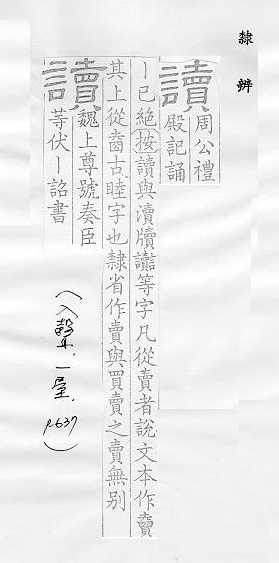 隸辨
讀
周公禮
殿記誦
丨已絕按讀與瀆牘讟等字凡從賣者說文本作𧶠
其上從古睦字也隸省作賣與買賣之賣無別
讀
魏上尊號奏臣
䓁伏丨詔書
(入聲,一屋,P.637)